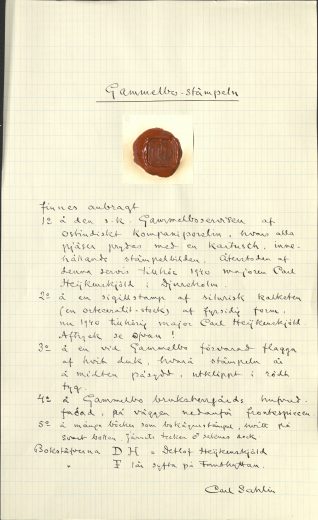 Gammelbo-stämpeln
Finnes anbragt
1º å den s.k. Gammelboservisen af
ostindiskt kompaniporslin, hvars alla
pjäser prydes med en kartusch, inne-
hållande stämpelbilden. Återstoden af
denna servis tillhör 1940 majoren Carl
Heijkenskjöld i Djursholm.
2º å en sigillstamp af silurisk kalksten
(en ortoceratit-stock) af fyrsidig form,
nu 1940 tillhörig major Carl Heijkenskjöld
Aftryck se ofvan!
3º å en vid Gammelbo förvarad flagga
af hvit duk, hvarå stämpeln är
å midten påsydd, utklippt i rödt
tyg.
4º å Gammelbo bruksherrgårds hufvud-
fasad, på väggen nedanför frontespisen
5º å många böcker som bokägarestämpel, hvitt på
svart botten, jämte tecken
Bokstäfverna D H = Detlof Heijkenskjöld
" F lär syfta på Finnhyttan.
Carl Sahlin